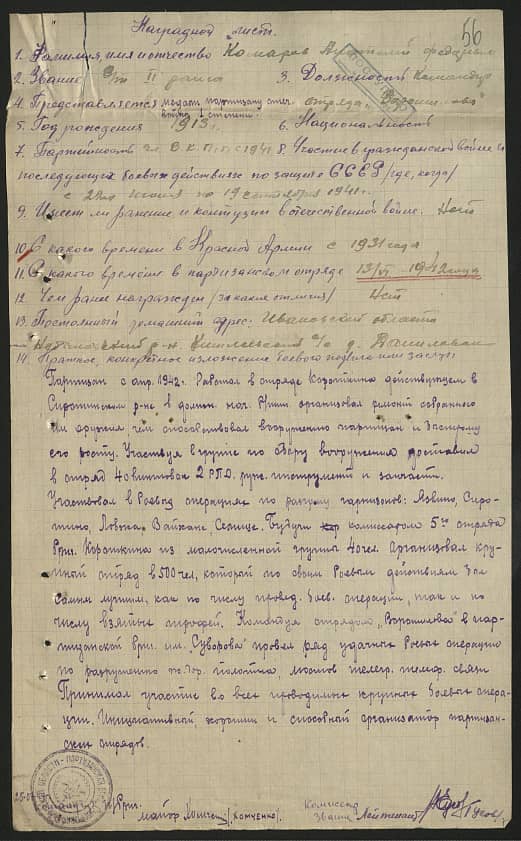 56
Наградной лист.
1. Фамилия, имя и отчество Комаров Анатолий Федорович
2. Звание В/т II ранга 3. Должность Командир
4. Представляется медали партизану отеч. отряда "Ворошилова"
войны I степени
5. Год рождения 1913г. 6. Национальность
7. Партийность чл. В.К.П.(б) с 1941 8. Участие в гражданской войне и
последующих боевых действиях по защите СССР /где, когда/
с 22го июня по 19 сентября 1941г.
9. Имеет ли ранение и контузии в отечественной войне. Нет
10. С какого времени в Красной Армии с 1931 года
11. С какого времени в партизанском отряде 13/VI 1942 года
12. Чем ранее награжден /за какие отличия/ Нет
13. Постоянный домашний адрес: Ивановской области
р-н, с/с д.
14. Краткое, конкретное изложение боевого подвига или заслуг
Партизан с апр. 1942г. Работал в отряде Короткина действующем в
Сиротинском р-не в должн. нач. Организовал ремонт собранного
им оружия чем способствовал вооружению партизан и быстрому
его росту. Участвуя в группе по сбору вооружения доставил
в отряд 40 винтовок 2 РПД. руж. инструмент и запчасти.
Участвовал в боевых операциях по разгрому гарнизонов: Язвино, Сиро-
тино, Ловжа Войхане Селище. Будучи комиссаром 5го отряда
бриг. Короткина из малочисленной группы 40 чел. Организовал кру-
пный отряд в 500 чел, который по своим боевым действиям был
самым лучшим, как по числу провед. боев. операций, так и по
числу взятых трофей. Командуя отрядом "Ворошилова" в пар-
тизанской бриг. им. "Суворова" провел ряд удачных боевых операций
по разрушению ж.дор. полотна, мостов телегр. телеф. связи
Принимал участие во всех проводимых крупных боевых опера-
ции. Инициативный, хороший и способный организатор партизан-
ских отрядов.
Бриг.
майор /Хомченко/
Комиссар
Звание Лейтенант /Гусов/